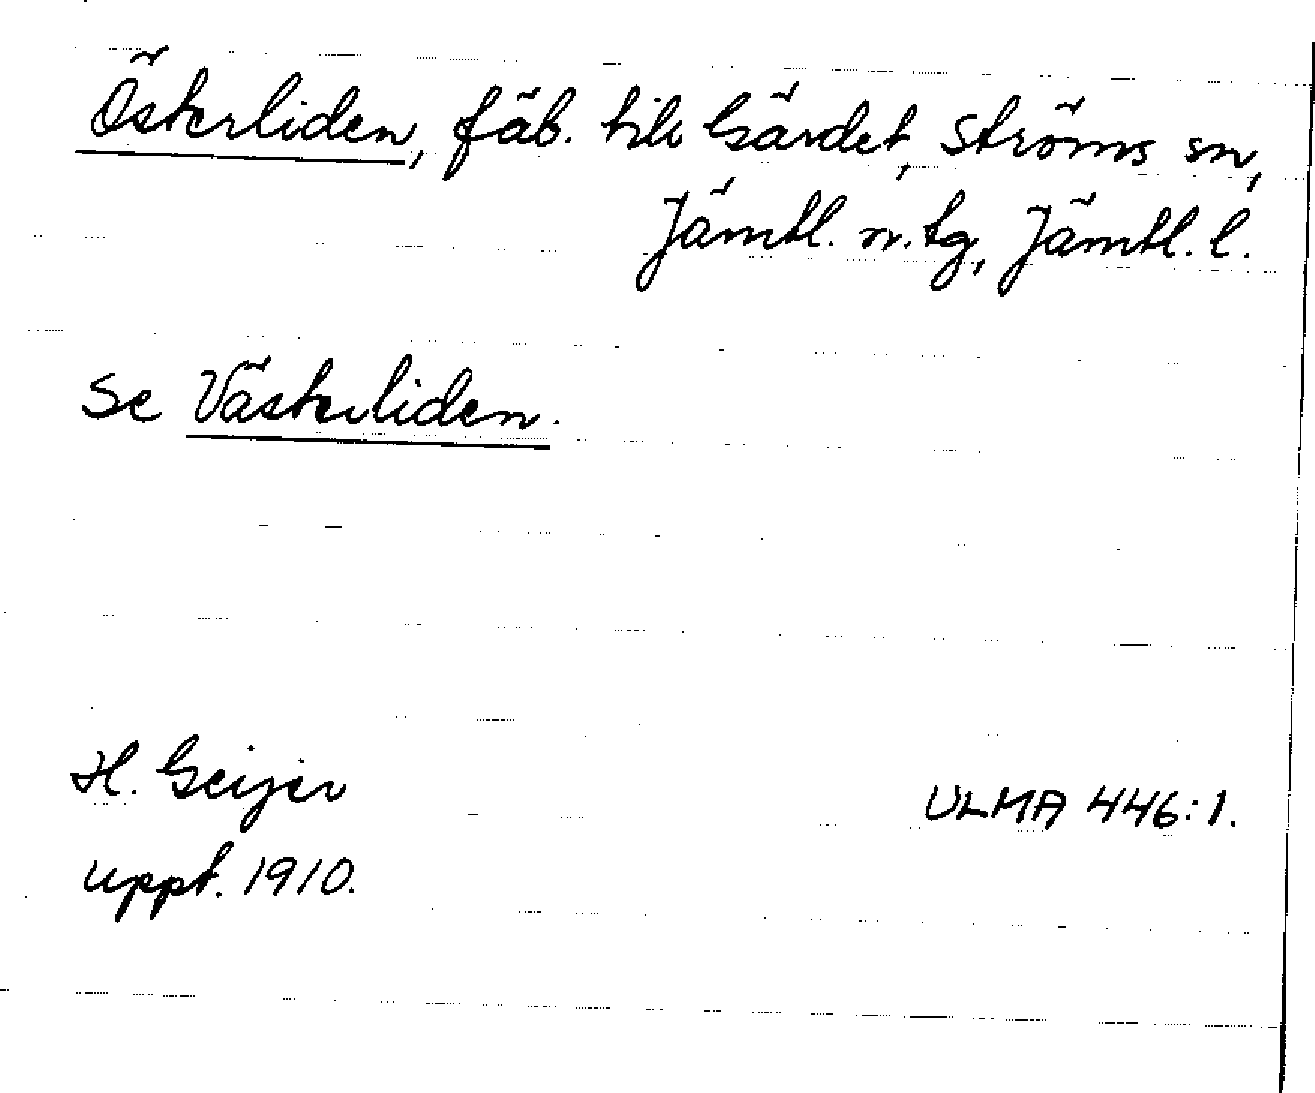 Österliden, fäb. till Gärdet, Ströms sn,
Jämtl. n. tg, Jämtl. l.
Se Västerliden.
H. Geijer
uppt. 1910.
ULMA 446:1.